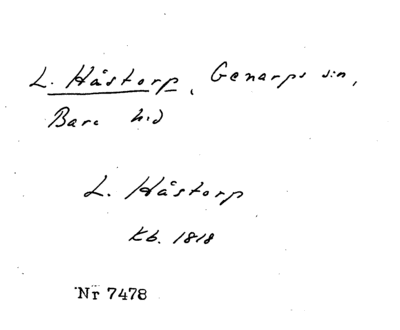 L. Håstorp, Genarps sn,
Bara hd
L. Håstorp
Kb. 1818
Nr 7478